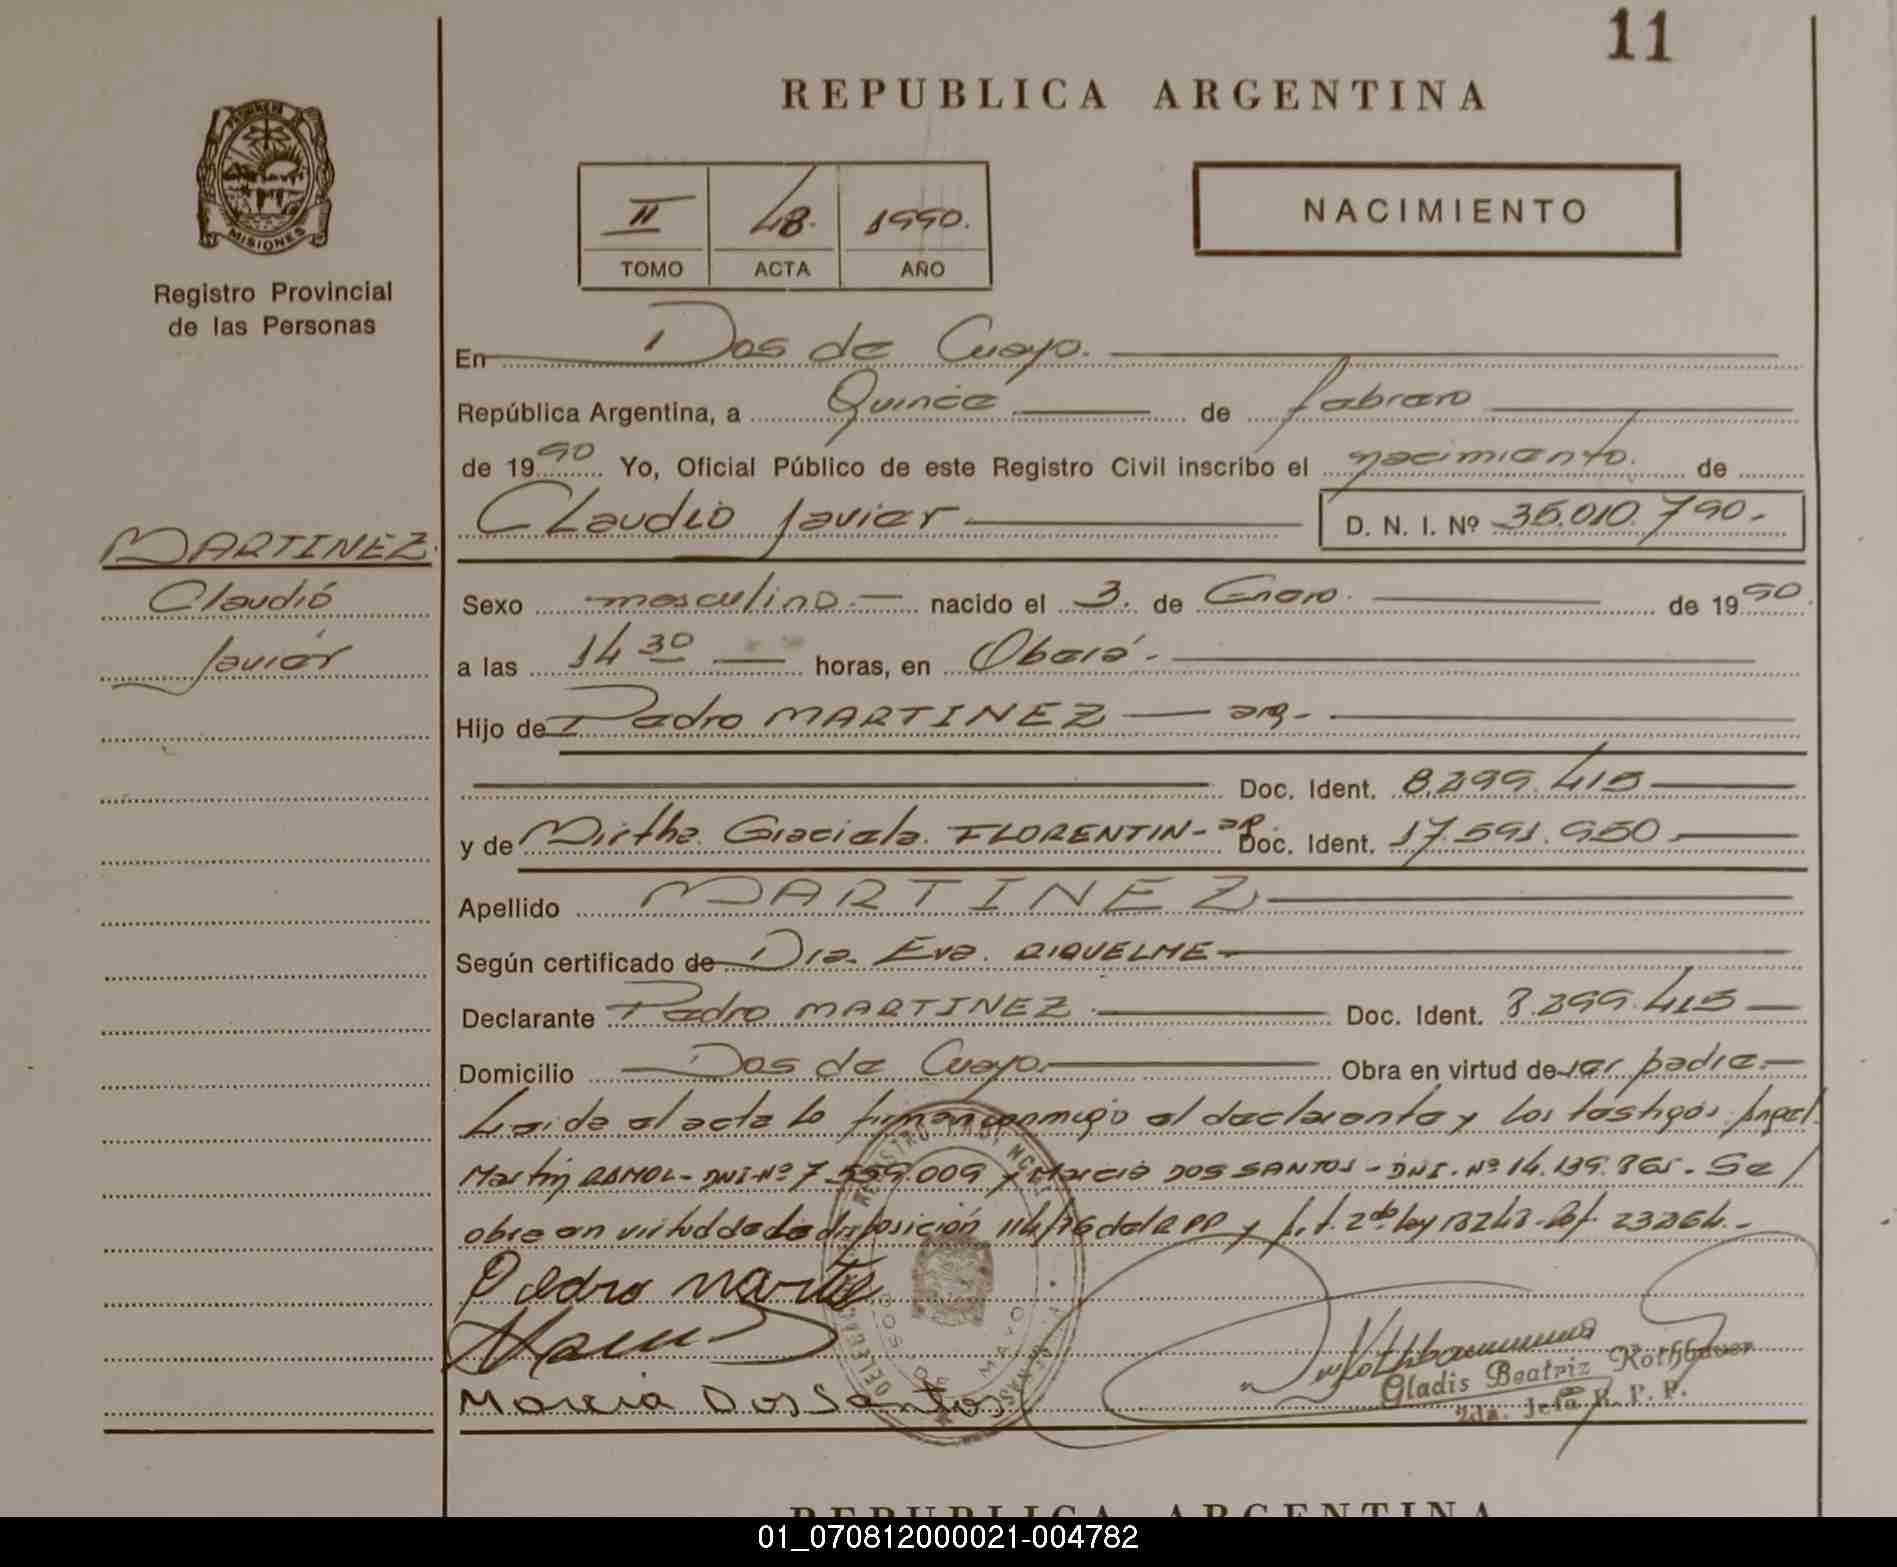 11
REPUBLICA ARGENTINA
MISIONES
Registro Provincial
de las Personas
II 48. 1990.
TOMO ACTA AÑO
NACIMIENTO
En Dos de Mayo.
República Argentina, a Quince de febrero
de 1990 Yo, Oficial Público de este Registro Civil inscribo el nacimiento. de
Claudio Javier D. N. I. Nº 35.010.790.-
MARTINEZ.
Claudio
Javier
Sexo masculino.- nacido el 3. de Enero. de 1990.
a las 14 30 horas, en Oberá.-
Hijo de Pedro MARTINEZ arg.-
Doc. Ident. 8.299.415
y de Mirtha Graciela FLORENTIN- Doc. Ident. 17.591.950
Apellido MARTINEZ
Según certificado de Dra. Eva RIQUELME
Declarante Pedro MARTINEZ Doc. Ident. 8.299.415
Domicilio Dos de Mayo Obra en virtud de ser padre.-
Leida el acta lo firman conmigo el declarante y los testigos Angel
Martin DNI-Nº 7.559.009 y Marcia DOS SANTOS-DNI.Nº 14.139.865.- Se
obra en virtud de la disposición 114/76 del RPP y
Pedro
Marcia Dos Santos
DOS DE MAYO
Gladis Beatriz Rothbauer
2da. Jefa R. P. P.
REPUBLICA ARGENTINA
01_070812000021-004782